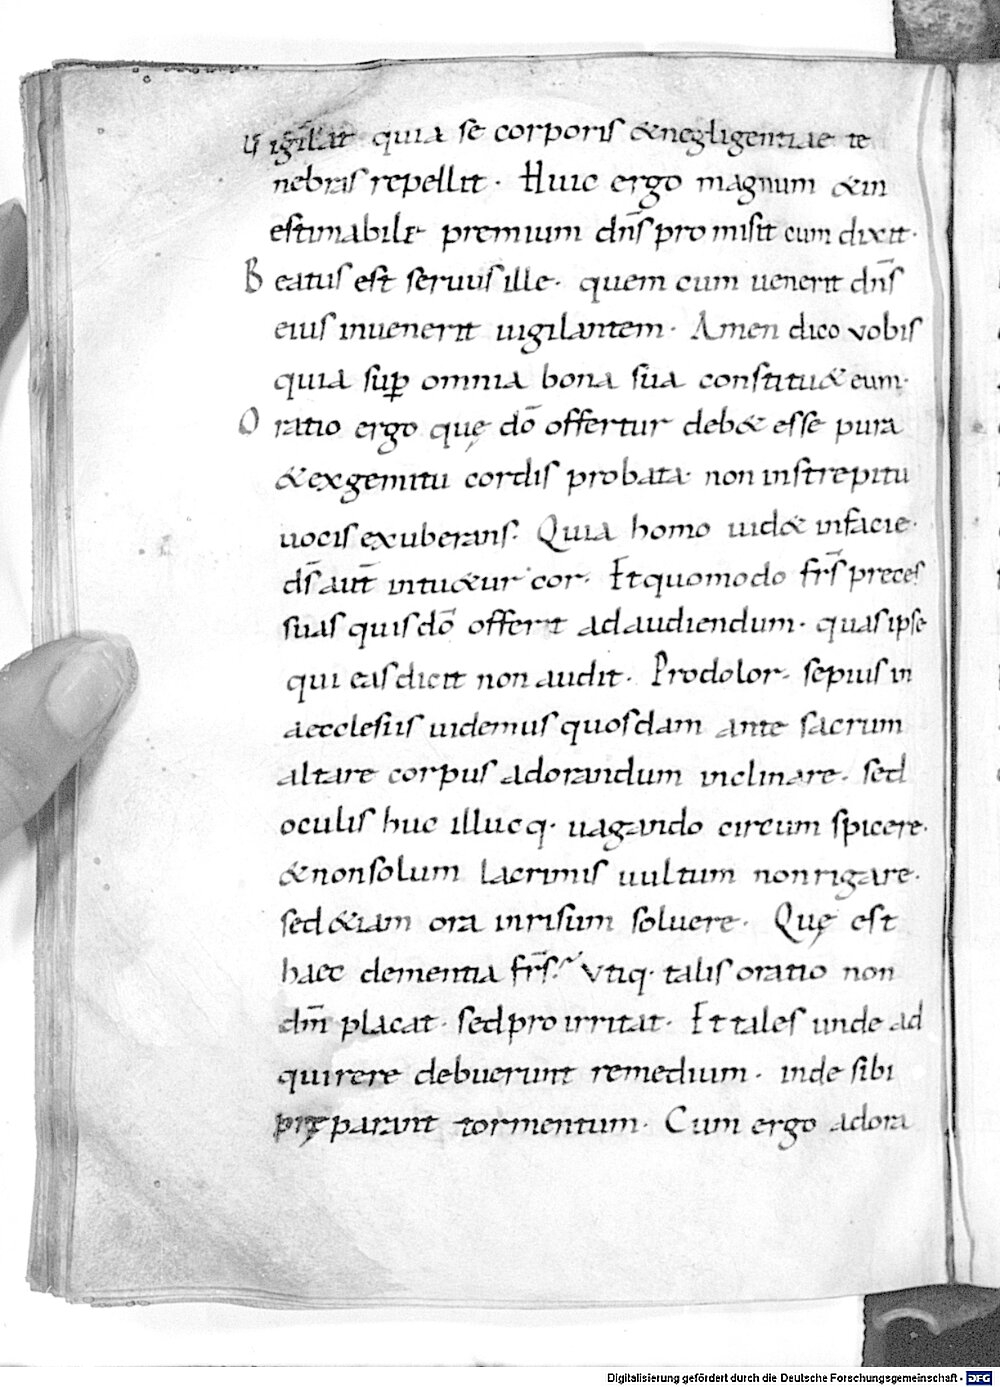 Uigilat quia se corporis &negligentiae te
nebris repellit. Huic ergo magnum &in
estimabile premium dn̄s promisit cum dixit.
Beatus est seruus ille. quem cum uenerit dn̄s
eius inuenerit uigilantem. Amen dico vobis
quia sup̱ omnia bona sua constitu& eum.
Oratio ergo quę dō offertur deb& esse pura
&exgemitu cordis probata. non instrepitu
uocis exuberans. Quia homo uid& infacie.
ds̄ aut̄ intu&ur cor. Et quomodo fr̄s preces
suas quis dō offerit ad audiendum. quas ipse
qui eas dicit non audit. Prodolor. sepius in
aecclesiis uidemus quosdam ante sacrum
altare corpus adorandum inclinare. sed
oculis huc illucq. uagando circum spicere.
&nonsolum lacrimis uultum nonrigare.
sed &iam ora inrisum soluere. Quę est
haec dementia fr̄s. Vtiq. talis oratio non
dm̄ placat. sed pro irritat. Et tales unde ad
quirere debuerunt remedium. inde sibi
pręparant tormentum. Cum ergo adora
Digitalisierung gefördert durch die Deutsche Forschungsgemeinschaft - DFG